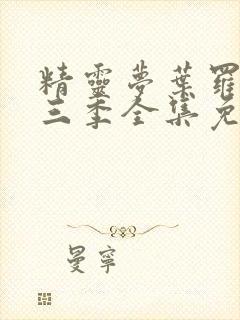 精靈夢葉羅
三季全集免
曼寧